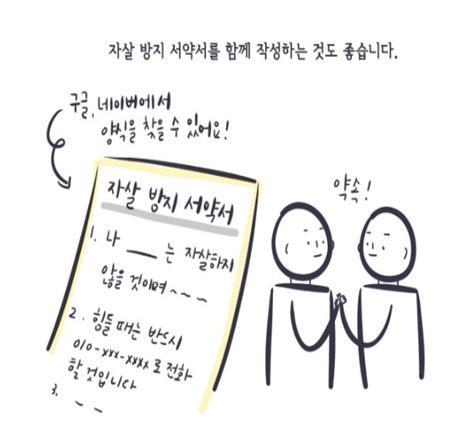 자살 방지 서약서를 함께 작성하는 것도 좋습니다.
구글, 네이버에서
양식을 찾을 수 있어요!
자살 방지 서약서
1. 나 ___는 자살하지
않을 것이며~~~
2. 힘들 때는 반드시
010-xxx-xxxx로 전화
할 것입니다
3. ~ ~
약속!